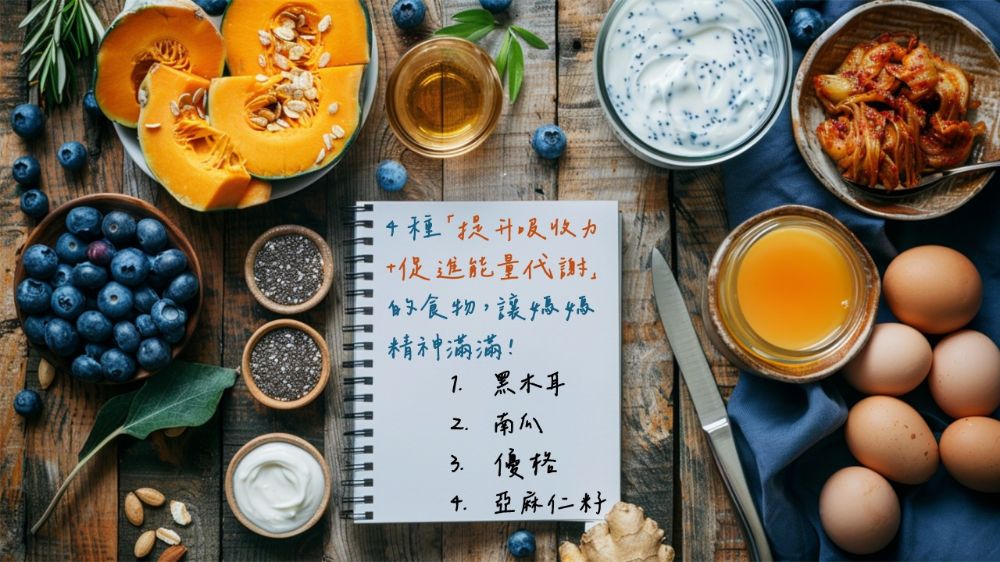 4種「提升吸收力
+促進能量代謝」
的食物,讓媽媽
精神滿滿!
1. 黑木耳
2. 南瓜
3. 優格
4. 亞麻仁籽